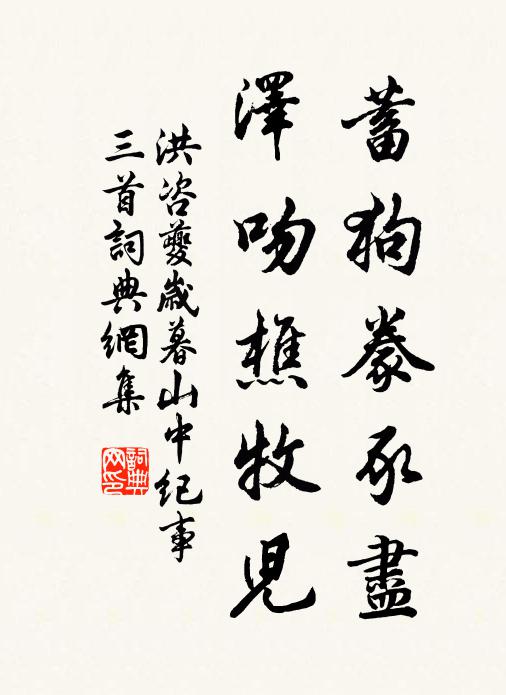 蓄狗豢豕盡
澤吻樵牧兒
洪咨夔歲暮山中紀事
三首詞典網集
詞典網印